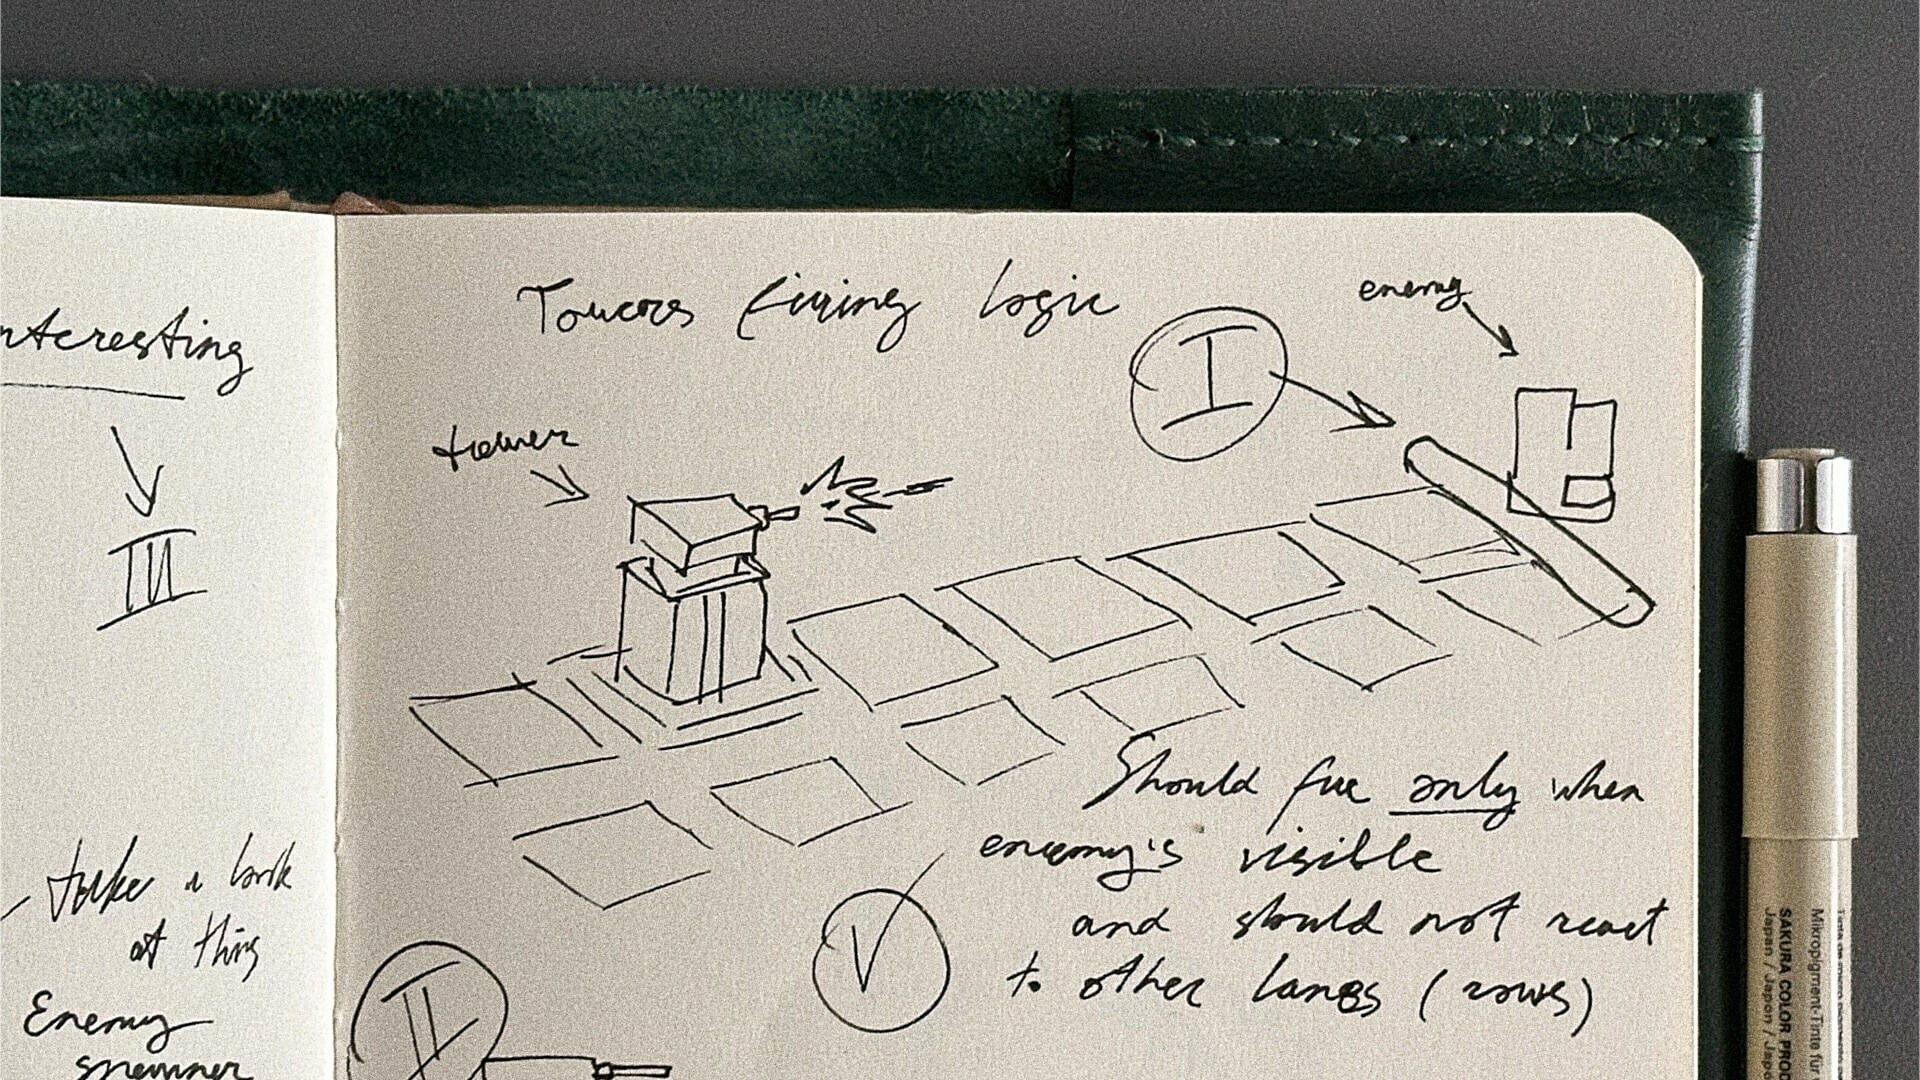 nteresting
III
take a look
at this
Enemy
spawner
Towers firing logic
enemy
I
tower
Should fire only when
enemy's visible
and should not react
to other lanes (rows)
V
II
SAKURA COLOR PROD
Japan / Japon / Japa
Mikropigment-Tinte für